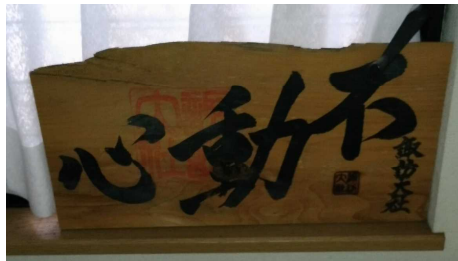 不動心
諏訪大社